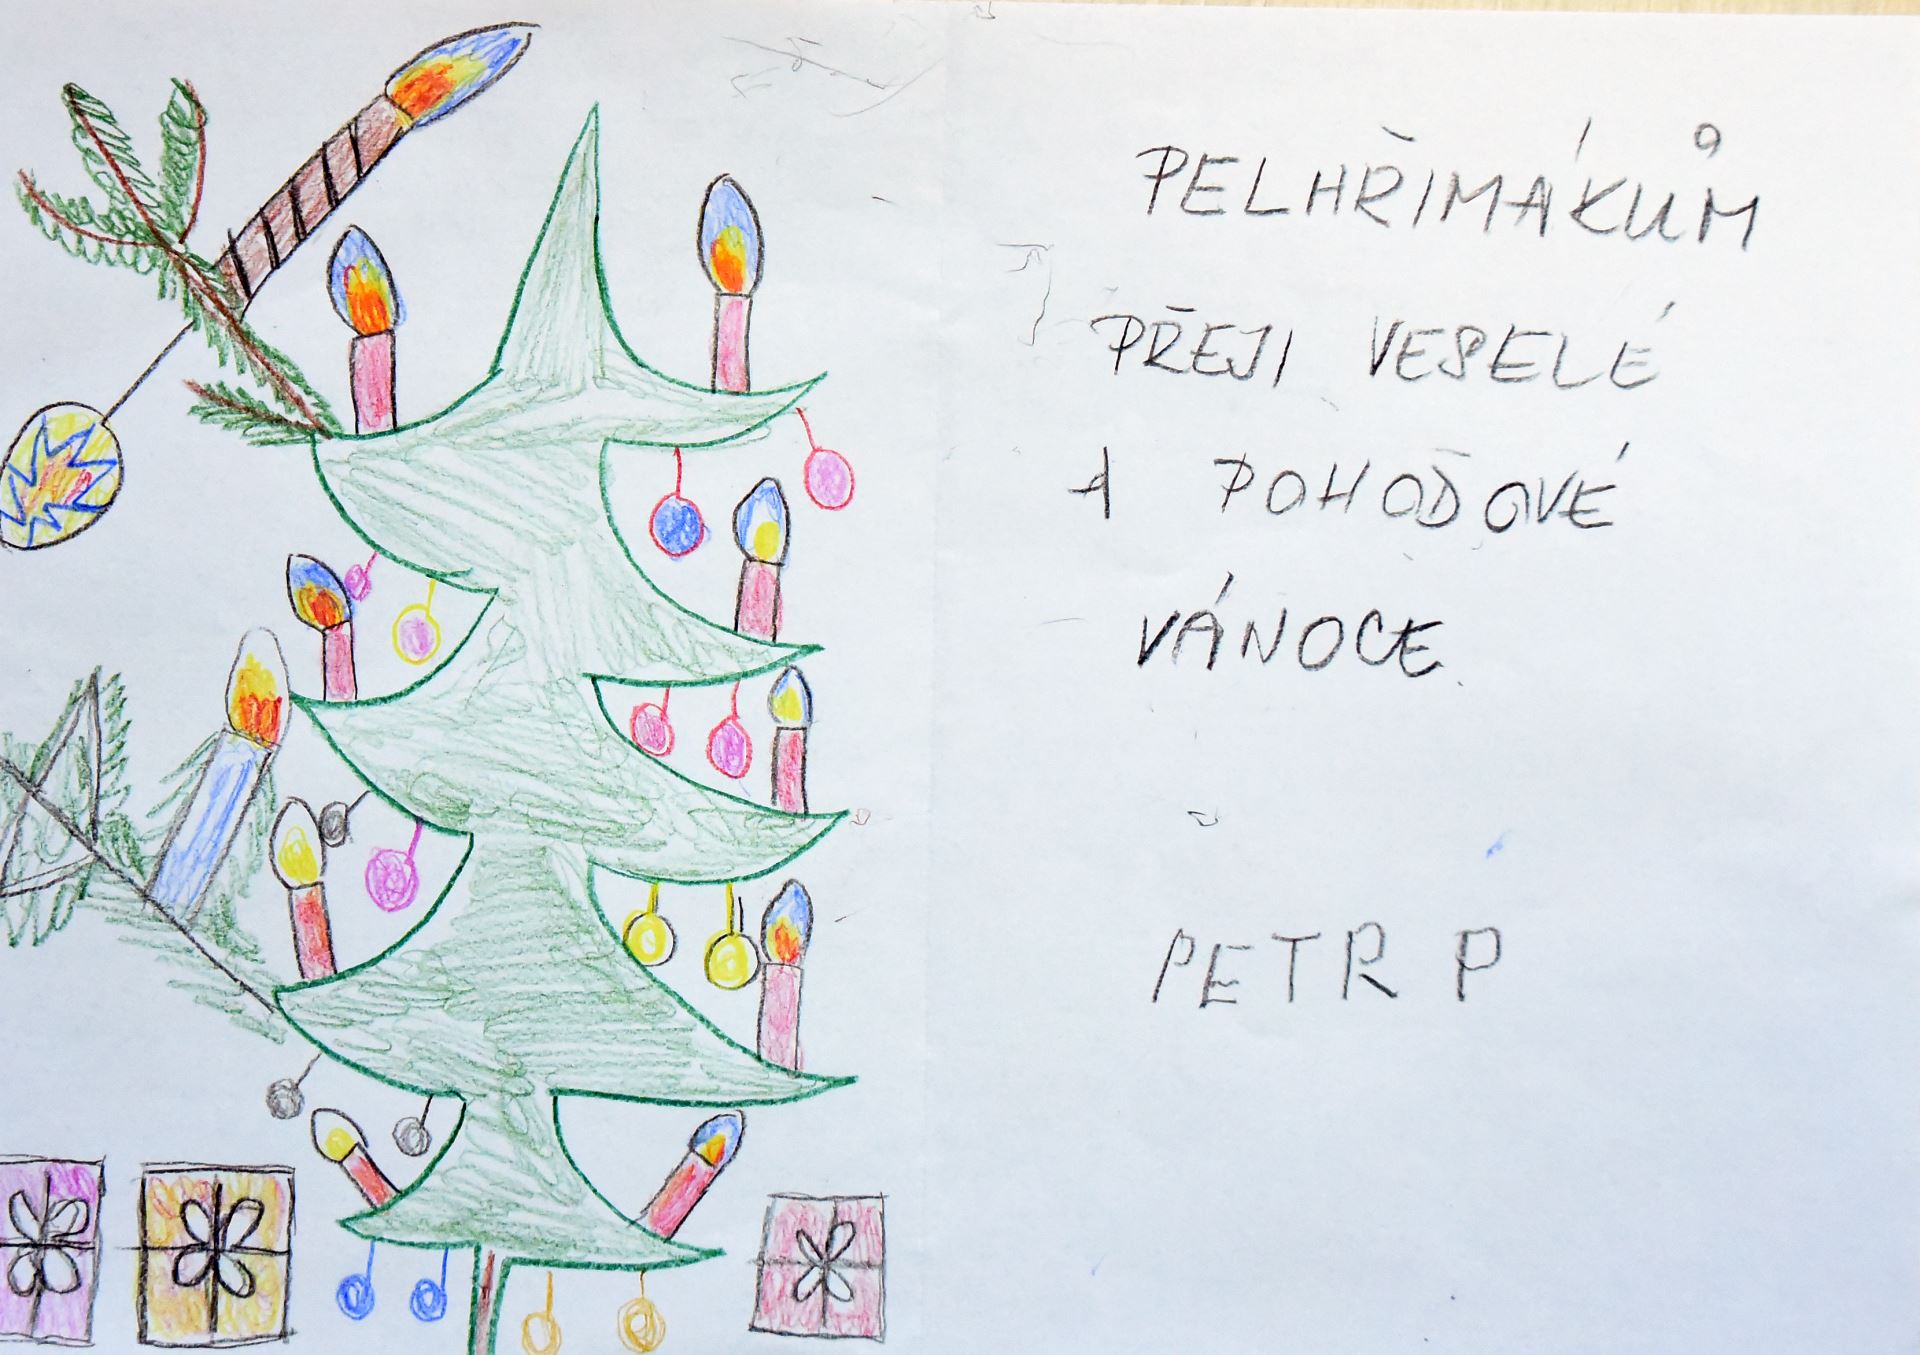 PELHŘIMÁKŮM
PŘEJI VESELÉ
A POHOĎOVÉ
VÁNOCE
PETR P